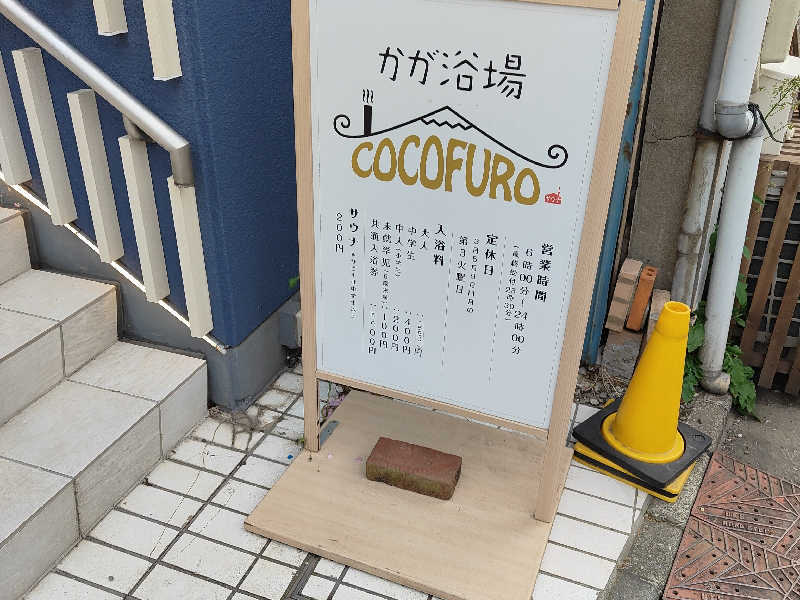 かが浴場
COCOFURO
営業時間
6時00分〜24時00分
(最終受付23時30分)
定休日
第3火曜日
入浴料
大人
中学生 400円
中人(小学生) 200円
未就学児 100円
共通入浴券
サウナ
200円